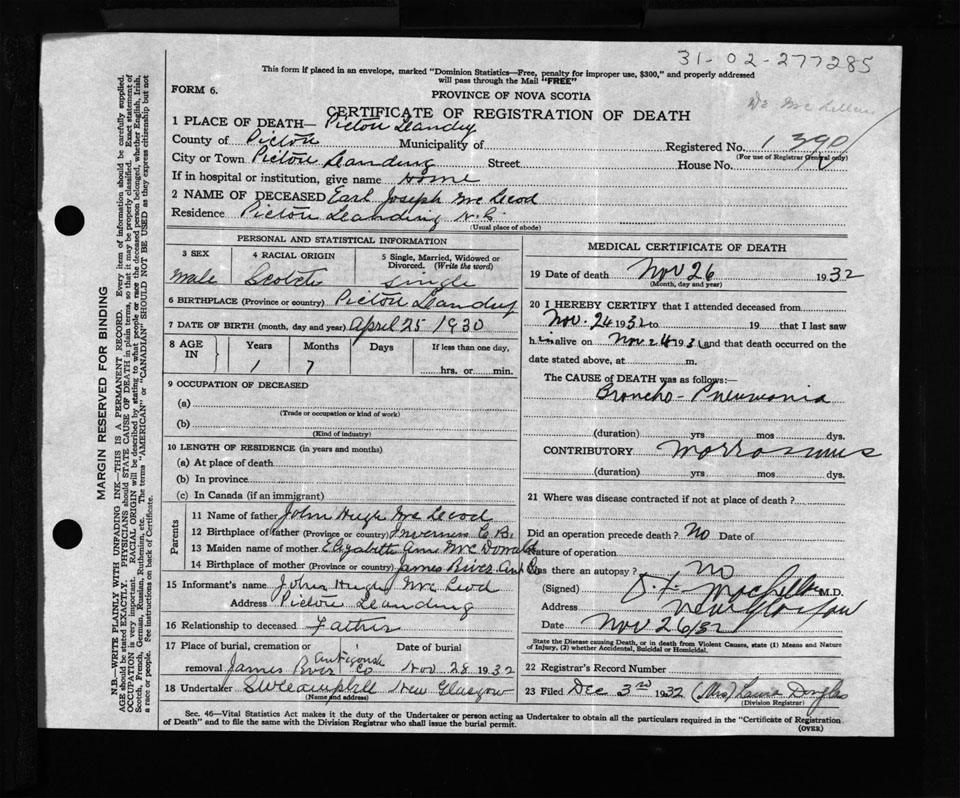 31-02-277285
This form if placed in an envelope, marked "Dominion Statistics—Free, penalty for improper use, $300," and properly addressed
will pass through the Mail "FREE"
FORM 6.
PROVINCE OF NOVA SCOTIA
CERTIFICATE OF REGISTRATION OF DEATH
1 PLACE OF DEATH— Pictou Landing
County of Pictou Municipality of Registered No. 1390
(For use of Registrar General only)
City or Town Pictou Landing Street House No.
If in hospital or institution, give name Home
2 NAME OF DECEASED Earl Joseph Mc Leod
Residence Pictou Landing N.S.
(Usual place of abode)
PERSONAL AND STATISTICAL INFORMATION
3 SEX 4 RACIAL ORIGIN 5 Single, Married, Widowed or
Divorced. (Write the word)
male Scotch Single
6 BIRTHPLACE (Province or country) Pictou Landing
7 DATE OF BIRTH (month, day and year) April 25 1930
8 AGE IN Years Months Days If less than one day,
1 7 hrs. or min.
9 OCCUPATION OF DECEASED
(a)
(Trade or occupation or kind of work)
(b)
(Kind of industry)
10 LENGTH OF RESIDENCE (in years and months)
(a) At place of death
(b) In province
(c) In Canada (if an immigrant)
Parents
11 Name of father John Hugh Mc Leod
12 Birthplace of father (Province or country) Inverness C.B.
13 Maiden name of mother Elizabeth Ann Mc Donald
14 Birthplace of mother (Province or country) James River Ant Co
15 Informant's name John Hugh Mc Leod
Address Pictou Landing
16 Relationship to deceased Father
17 Place of burial, cremation or Date of burial
removal James River Antigonish Co Nov. 28 1932
18 Undertaker New Glasgow
(Name and address)
MEDICAL CERTIFICATE OF DEATH
19 Date of death Nov 26 1932
(Month, day and year)
20 I HEREBY CERTIFY that I attended deceased from
Nov. 24 1932 to 19 that I last saw
him alive on Nov 24 193 and that death occurred on the
date stated above, at m.
The CAUSE of DEATH was as follows:—
Broncho-Pneumonia
(duration) yrs mos dys.
CONTRIBUTORY Morrasmus
(duration) yrs mos dys.
21 Where was disease contracted if not at place of death?
Did an operation precede death? No Date of
Nature of operation
Was there an autopsy? No
(Signed) M.D.
Address New Glasgow
Date Nov 26/32
State the Disease causing Death, or in death from Violent Causes, state (1) Means and Nature
of Injury, (2) whether Accidental, Suicidal or Homicidal.
22 Registrar's Record Number
23 Filed Dec 3rd 1932 (Mrs) Laura Douglas
(Division Registrar)
Sec. 46—Vital Statistics Act makes it the duty of the Undertaker or person acting as Undertaker to obtain all the particulars required in the "Certificate of Registration
of Death" and to file the same with the Division Registrar who shall issue the burial permit.
(OVER)
MARGIN RESERVED FOR BINDING
N.B.—WRITE PLAINLY WITH UNFADING INK—THIS IS A PERMANENT RECORD. Every item of information should be carefully supplied.
AGE should be stated EXACTLY. PHYSICIANS should STATE CAUSE OF DEATH in plain terms, so that it may be properly classified. Exact statement of
OCCUPATION is very important. RACIAL ORIGIN will be described by stating to what people or race the deceased person belonged, whether English, Irish,
Scotch, French, German, Russian, Ruthenian, etc. The terms "AMERICAN" or "CANADIAN" SHOULD NOT BE USED as they express citizenship but not
a race or people. See instructions on back of Certificate.